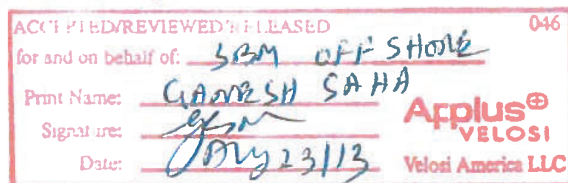 ACCEPTED/REVIEWED/RELEASED 046
for and on behalf of: SBM OFF SHORE
Print Name: GANESH SAHA
Signature:
Date: 23/13
Applus⊕
VELOSI
Velosi America LLC